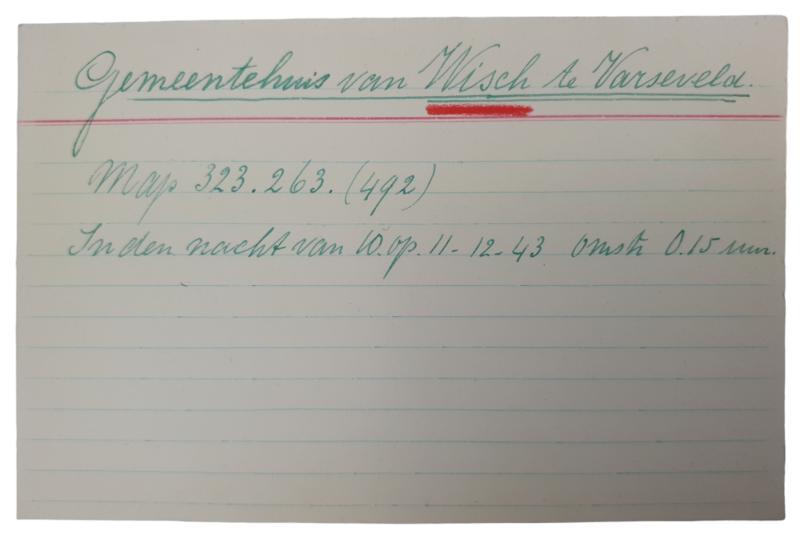 Gemeentehuis van Wisch te Varseveld.
Map 323.263. (492)
In den nacht van 10 op. 11-12-43 omstr 0.15 uur.